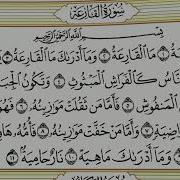 سُورَةُ القَارِعَةِ
بِسْمِ اللَّهِ الرَّحْمَٰنِ الرَّحِيمِ
مَا الْقَارِعَةُ ٢ وَمَا أَدْرَىٰكَ مَا الْقَارِعَةُ ٣
نَّاسُ كَالْفَرَاشِ الْمَبْثُوثِ ٤ وَتَكُونُ الْجِبَ
الْمَنفُوشِ ٥ فَأَمَّا مَن ثَقُلَتْ مَوَٰزِينُهُ ٦ فَهُوَ
اضِيَةٍ ٧ وَأَمَّا مَنْ خَفَّتْ مَوَٰزِينُهُ ٨ فَأُمُّهُ هَاوِ
وَمَا أَدْرَىٰكَ مَا هِيَهْ ١٠ نَارٌ حَامِيَةٌ ١١